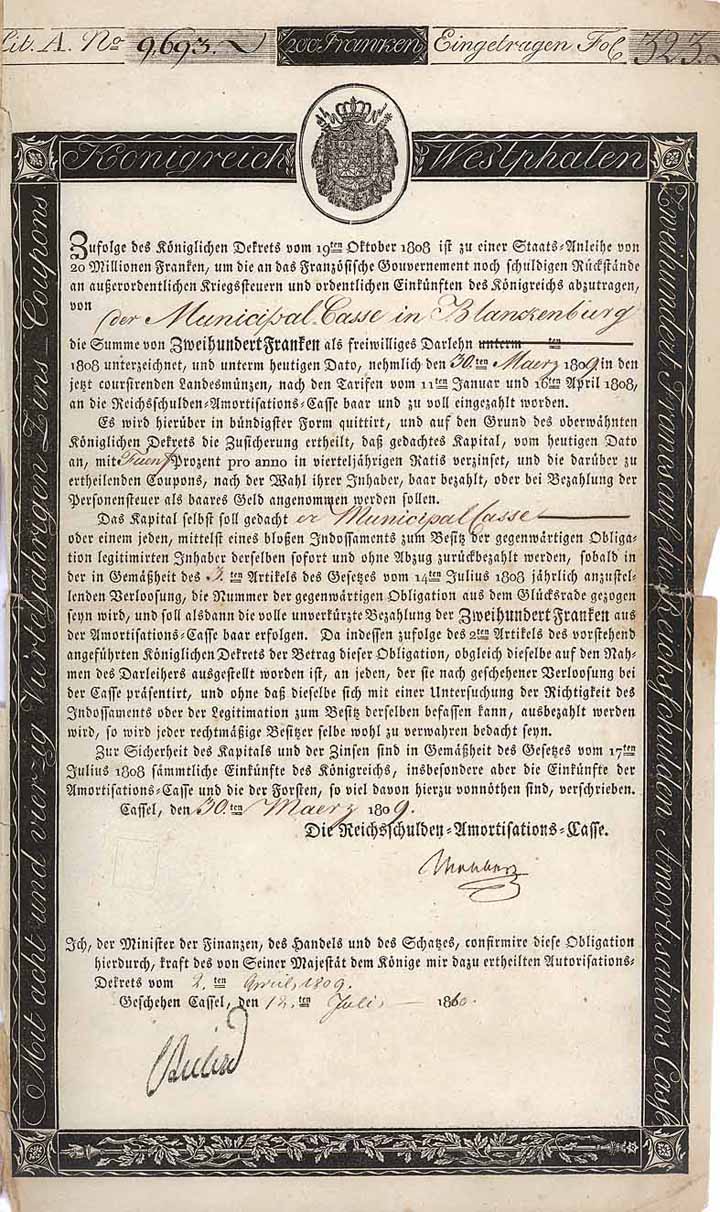 Lit. A. No 9,693. 200 Franken Eingetragen Fol 323.
Königreich Westphalen
Mit acht und vierzig Virteljährigen Zins-Coupons
Zufolge des Königlichen Dekrets vom 19ten Oktober 1808 ist zu einer Staats-Anleihe von
20 Millionen Franken, um die an das Französische Gouvernement noch schuldigen Rückstände
an außerordentlichen Kriegssteuern und ordentlichen Einkünften des Königreichs abzutragen,
von der Municipal-Casse in Blanckenburg
die Summe von Zweihundert Franken als freiwilliges Darlehn unterm ten
1808 unterzeichnet, und unterm heutigen Dato, nehmlich den 30.ten Maerz 1809 in den
jetzt coursirenden Landesmünzen, nach den Tarifen vom 11ten Januar und 16ten April 1808,
an die Reichsschulden-Amortisations-Casse baar und zu voll eingezahlt worden.
Es wird hierüber in bündigster Form quittirt, und auf den Grund des oberwähnten
Königlichen Dekrets die Zusicherung ertheilt, daß gedachtes Kapital, vom heutigen Dato
an, mit Fuenf Prozent pro anno in vierteljährigen Ratis verzinset, und die darüber zu
ertheilenden Coupons, nach der Wahl ihrer Inhaber, baar bezahlt, oder bei Bezahlung der
Personensteuer als baares Geld angenommen werden sollen.
Das Kapital selbst soll gedacht er Municipal Casse
oder einem jeden, mittelst eines bloßen Indossaments zum Besitz der gegenwärtigen Obliga-
tion legitimirten Inhaber derselben sofort und ohne Abzug zurückbezahlt werden, sobald in
der in Gemäßheit des 3.ten Artikels des Gesetzes vom 14ten Julius 1808 jährlich anzustel-
lenden Verloosung, die Nummer der gegenwärtigen Obligation aus dem Glücksrade gezogen
seyn wird, und soll alsdann die volle unverkürzte Bezahlung der Zweihundert Franken aus
der Amortisations-Casse baar erfolgen. Da indessen zufolge des 2ten Artikels des vorstehend
angeführten Königlichen Dekrets der Betrag dieser Obligation, obgleich dieselbe auf den Nah-
men des Darleihers ausgestellt worden ist, an jeden, der sie nach geschehener Verloosung bei
der Casse präsentirt, und ohne daß dieselbe sich mit einer Untersuchung der Richtigkeit des
Indossaments oder der Legitimation zum Besitz derselben befassen kann, ausbezahlt werden
wird, so wird jeder rechtmäßige Besitzer selbe wohl zu verwahren bedacht seyn.
Zur Sicherheit des Kapitals und der Zinsen sind in Gemäßheit des Gesetzes vom 17ten
Julius 1808 sämmtliche Einkünfte des Königreichs, insbesondere aber die Einkünfte der
Amortisations-Casse und die der Forsten, so viel davon hierzu vonnöthen sind, verschrieben.
Cassel, den 30.ten Maerz 1809.
Die Reichsschulden-Amortisations-Casse.
Ich, der Minister der Finanzen, des Handels und des Schatzes, confirmire diese Obligation
hierdurch, kraft des von Seiner Majestät dem Könige mir dazu ertheilten Autorisations-
Dekrets vom 2.ten April 1809.
Geschehen Cassel, den 18.ten Juli 18
Zweihundert Francs auf die Reichsschulden Amortisations Casse